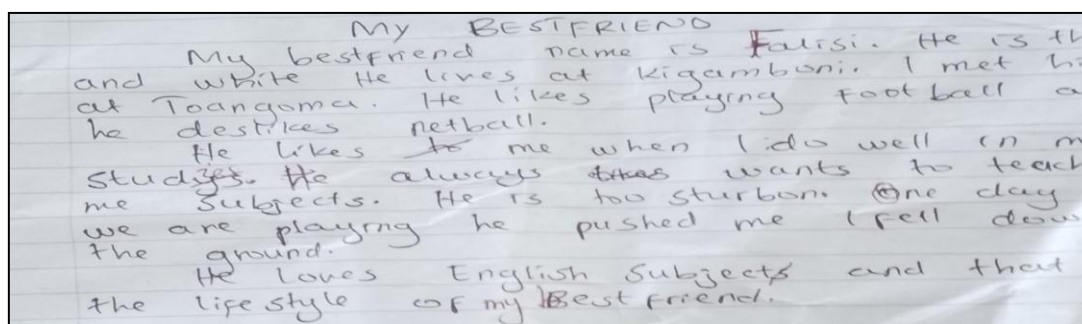 My BESTFRIEND
My bestfriend name is Falisi. He is th
and white He lives at Kigamboni. I met hi
at Toangoma. He likes playing Football a
he deslikes netball.
He likes to me when I do well in m
studies. He always wants to teach
me subjects. He is too sturbon. One day
we are playing he pushed me I fell dow
the ground.
He loves English subjects and that
the life style of my Best friend.